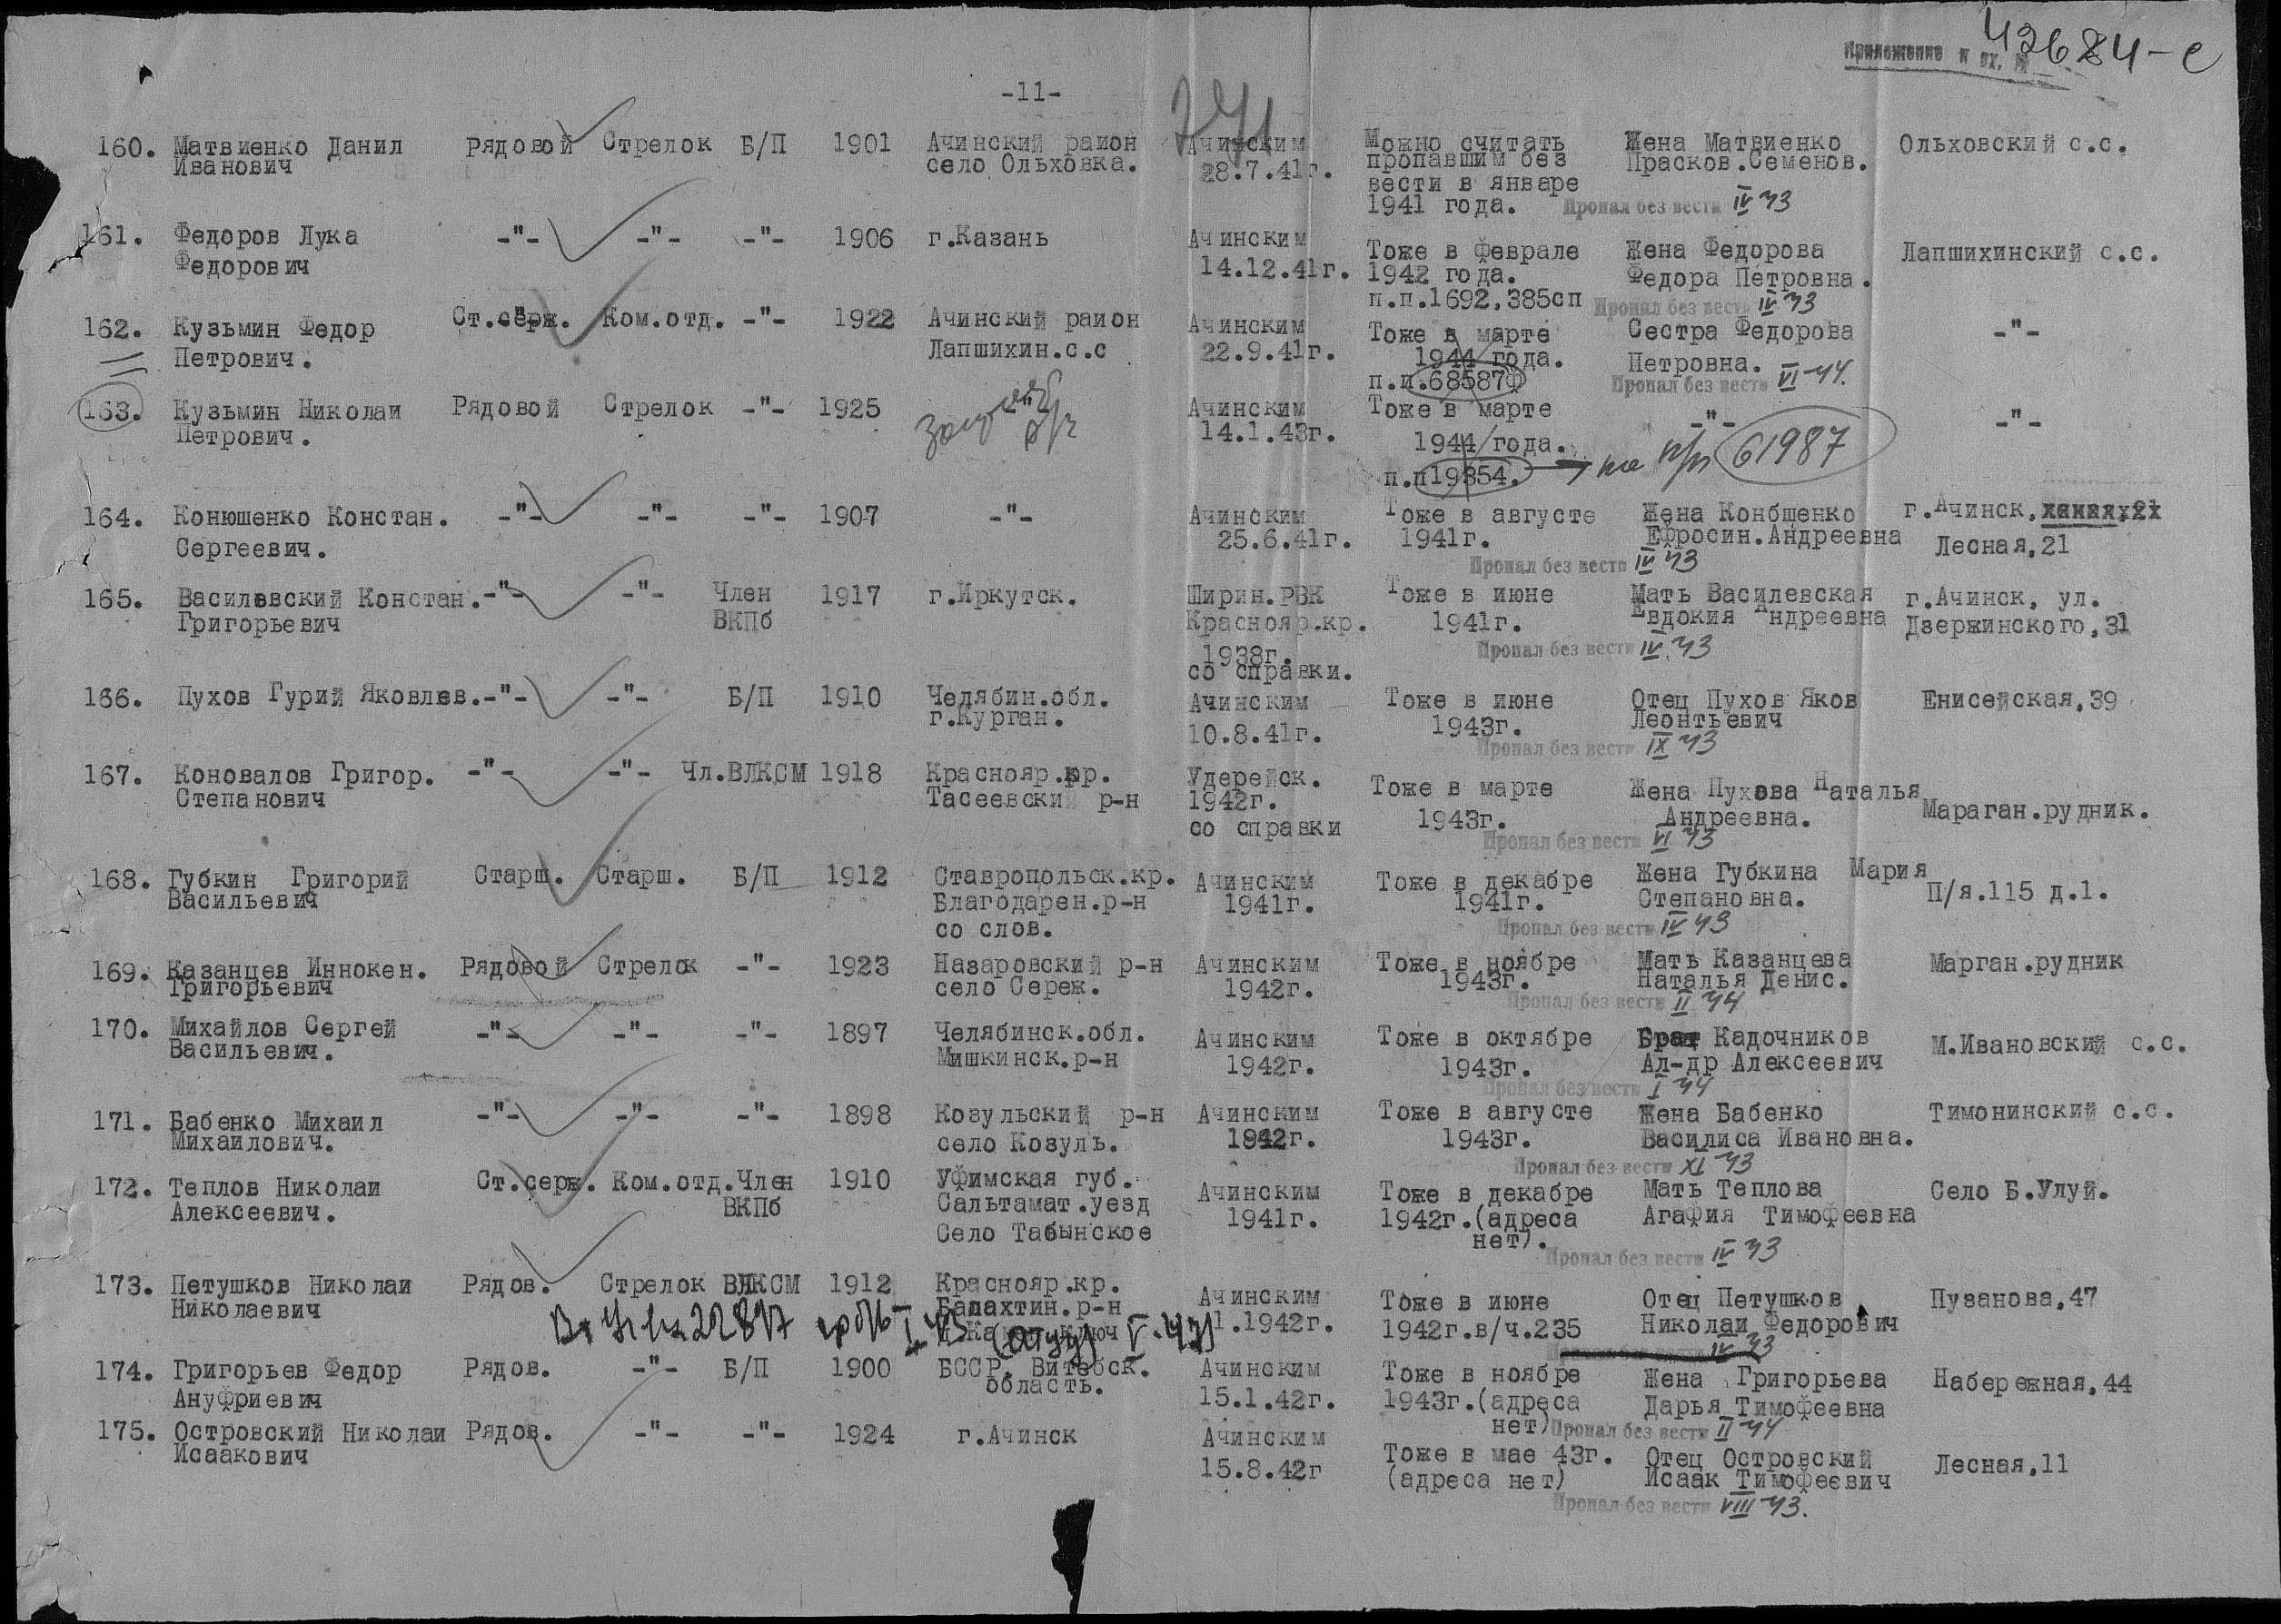 42684-с
Приложение к вх. №
-11-
271
160. Матвиенко Данил Рядовой Стрелок Б/П 1901 Ачинский район Ачинским Можно считать Жена Матвиенко Ольховский с.с.
Иванович село Ольховка. 28.7.41г. пропавшим без Прасков.Семенов.
вести в январе
1941 года. Пропал без вести IV 43
161. Федоров Лука -"- -"- -"- 1906 г.Казань Ачинским Тоже в феврале Жена Федорова Лапшихинский с.с.
Федорович 14.12.41г. 1942 года. Федора Петровна.
п.п.1692,385сп Пропал без вести IV 43
162. Кузьмин Федор Ст.серж. Ком.отд. -"- 1922 Ачинский раион Ачинским Тоже в марте Сестра Федорова -"-
Петрович. Лапшихин.с.с 22.9.41г. 1944 года. Петровна.
п.п.68587Ф Пропал без вести VI-44.
163. Кузьмин Николаи Рядовой Стрелок -"- 1925 -"- Ачинским Тоже в марте -"- -"-
Петрович. 14.1.43г. 1944 года.
п.п19354. → п/п 61987
164. Конюшенко Констан. -"- -"- -"- 1907 -"- Ачинским Тоже в августе Жена Конбщенко г.Ачинск,
Сергеевич. 25.6.41г. 1941г. Ефросин.Андреевна Лесная,21
Пропал без вести IV 43
165. Василевский Констан. -"- -"- Член 1917 г.Иркутск. Ширин.РВК Тоже в июне Мать Василевская г.Ачинск, ул.
Григорьевич ВКПб Краснояр.кр. 1941г. Евдокия Андреевна Дзержинского,31
1938г. Пропал без вести IV.43
со справки.
166. Пухов Гурий Яковлев. -"- -"- Б/П 1910 Челябин.обл. Ачинским Тоже в июне Отец Пухов Яков Енисейская,39
г.Курган. 10.8.41г. 1943г. Леонтьевич
Пропал без вести IX 43
167. Коновалов Григор. -"- -"- Чл.ВЛКСМ 1918 Краснояр.кр. Удерейск. Тоже в марте Жена Пухова Наталья Мараган.рудник.
Степанович Тасеевский р-н 1942г. 1943г. Андреевна.
со справки Пропал без вести VI 43
168. Губкин Григорий Старш. Старш. Б/П 1912 Ставропольск.кр. Ачинским Тоже в декабре Жена Губкина Мария П/я.115 д.1.
Васильевич Благодарен.р-н 1941г. 1941г. Степановна.
со слов. Пропал без вести IV 43
169. Казанцев Иннокен. Рядовой Стрелок -"- 1923 Назаровский р-н Ачинским Тоже в ноябре Мать Казанцева Марган.рудник
Григорьевич село Сереж. 1942г. 1943г. Наталья Денис.
Пропал без вести II 44
170. Михайлов Сергей -"- -"- -"- 1897 Челябинск.обл. Ачинским Тоже в октябре Брат Кадочников М.Ивановский с.с.
Васильевич. Мишкинск.р-н 1942г. 1943г. Ал-др Алексеевич
Пропал без вести I 44
171. Бабенко Михаил -"- -"- -"- 1898 Козульский р-н Ачинским Тоже в августе Жена Бабенко Тимонинский с.с.
Михаилович. село Козуль. 1942г. 1943г. Василиса Ивановна.
Пропал без вести XI 43
172. Теплов Николаи Ст.серж. Ком.отд. Член 1910 Уфимская губ. Ачинским Тоже в декабре Мать Теплова Село Б.Улуй.
Алексеевич. ВКПб Сальтамат.уезд 1941г. 1942г.(адреса Агафия Тимофеевна
Село Табынское нет).
Пропал без вести IV 43
173. Петушков Николаи Рядов. Стрелок ВЛКСМ 1912 Краснояр.кр. Ачинским Тоже в июне Отец Петушков Пузанова,47
Николаевич Балахтин.р-н 1.1942г. 1942г.в/ч.235 Николаи Федорович
IV 43
174. Григорьев Федор Рядов. -"- Б/П 1900 БССР, Витебск. Ачинским Тоже в ноябре Жена Григорьева Набережная,44
Ануфриевич область. 15.1.42г. 1943г.(адреса Дарья Тимофеевна
нет) Пропал без вести II 44
175. Островский Николаи Рядов. -"- -"- 1924 г.Ачинск Ачинским Тоже в мае 43г. Отец Островский Лесная,11
Исаакович 15.8.42г (адреса нет) Исаак Тимофеевич
Пропал без вести VIII 43.